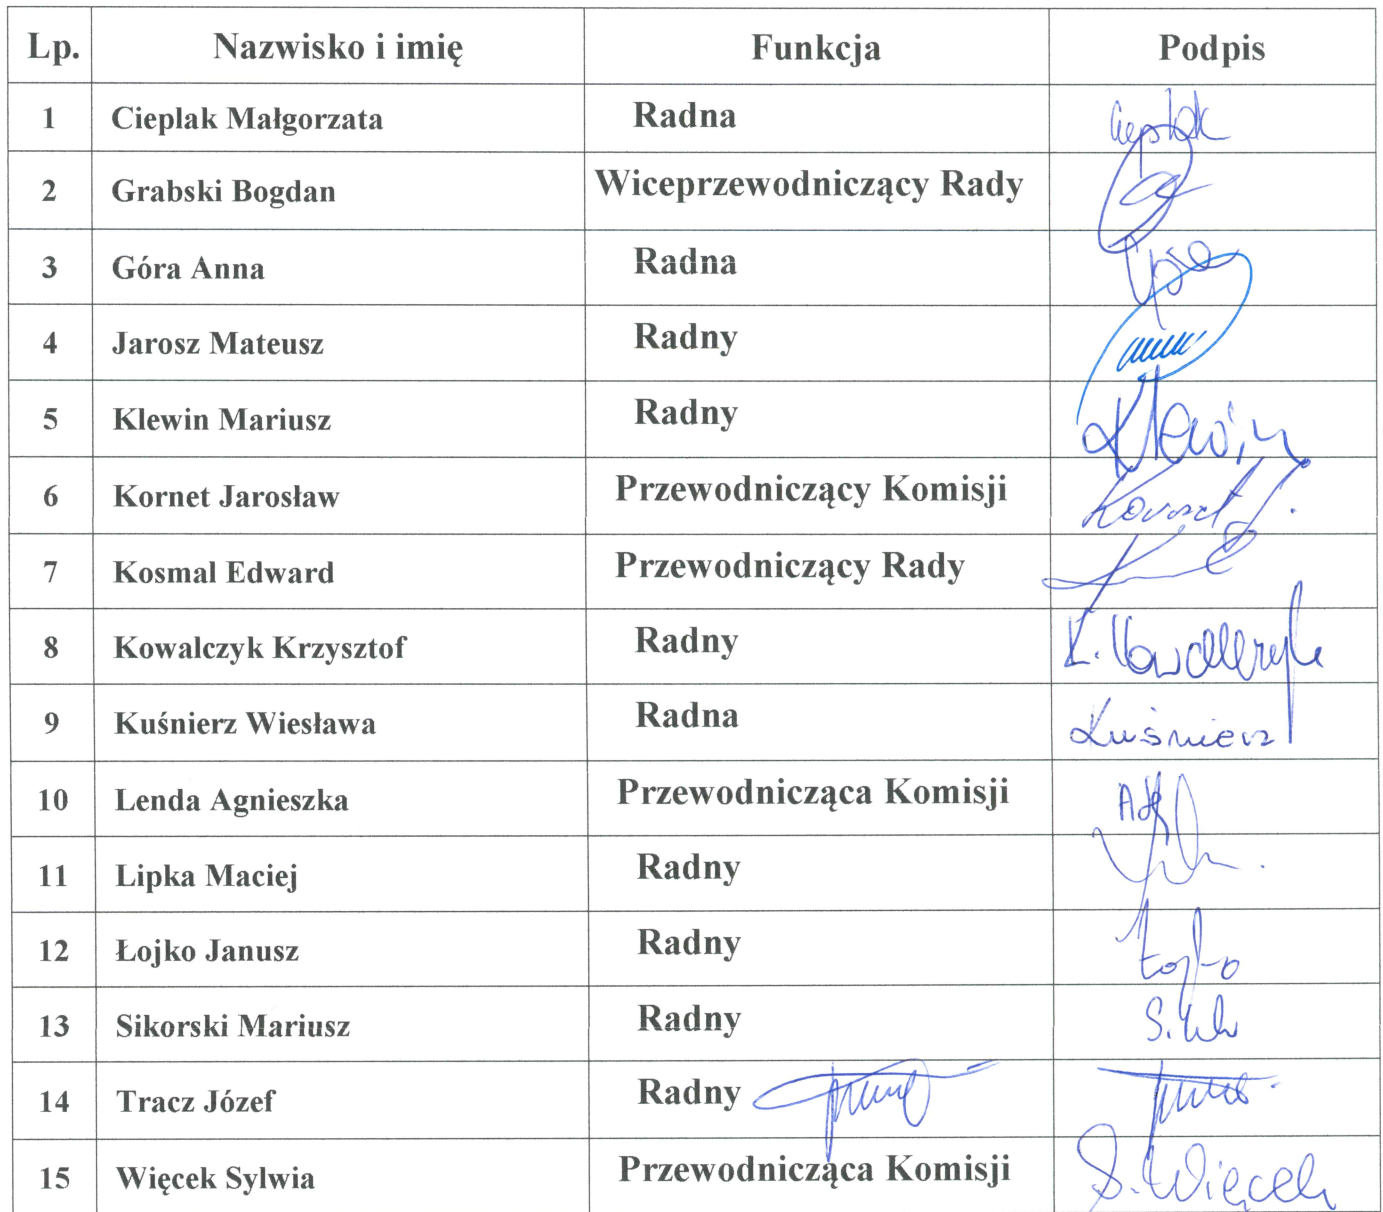 Lp. Nazwisko i imię Funkcja Podpis
1 Cieplak Małgorzata Radna Cieplak
2 Grabski Bogdan Wiceprzewodniczący Rady
3 Góra Anna Radna Góra
4 Jarosz Mateusz Radny
5 Klewin Mariusz Radny Klewin
6 Kornet Jarosław Przewodniczący Komisji Kornet J.
7 Kosmal Edward Przewodniczący Rady
8 Kowalczyk Krzysztof Radny K. Kowalczyk
9 Kuśnierz Wiesława Radna Kuśnierz
10 Lenda Agnieszka Przewodnicząca Komisji
11 Lipka Maciej Radny
12 Łojko Janusz Radny Łojko
13 Sikorski Mariusz Radny
14 Tracz Józef Radny
15 Więcek Sylwia Przewodnicząca Komisji S. Więcek